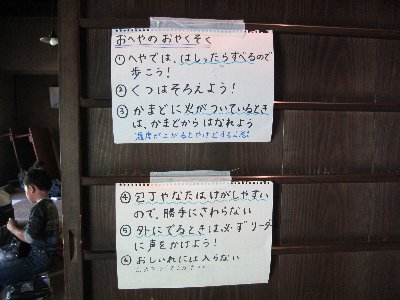 おへやの おやくそく
① へやでは、はしったらすべるので
歩こう!
② くつはそろえよう!
③ かまどに火がついているとき
は、かまどからはなれよう
④ 包丁やなたはけがしやすい
ので、勝手にさわらない
⑤ 外にでるときは必ずリーダー
に声をかけよう!
⑥ おしいれには入らない